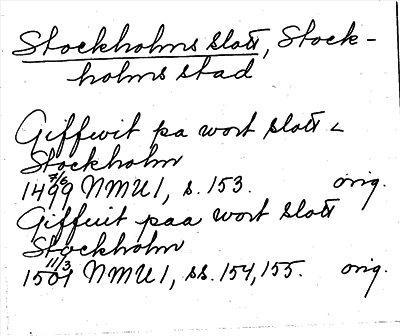 Stockholms slott, Stock-
holms stad
Giffwit pa wort slott
Stockholm
7/6
1499 NMU 1, s. 153. orig.
Giffuit paa wort slott
Stockholm
11/3
1501 NMU 1, ss. 154, 155. orig.